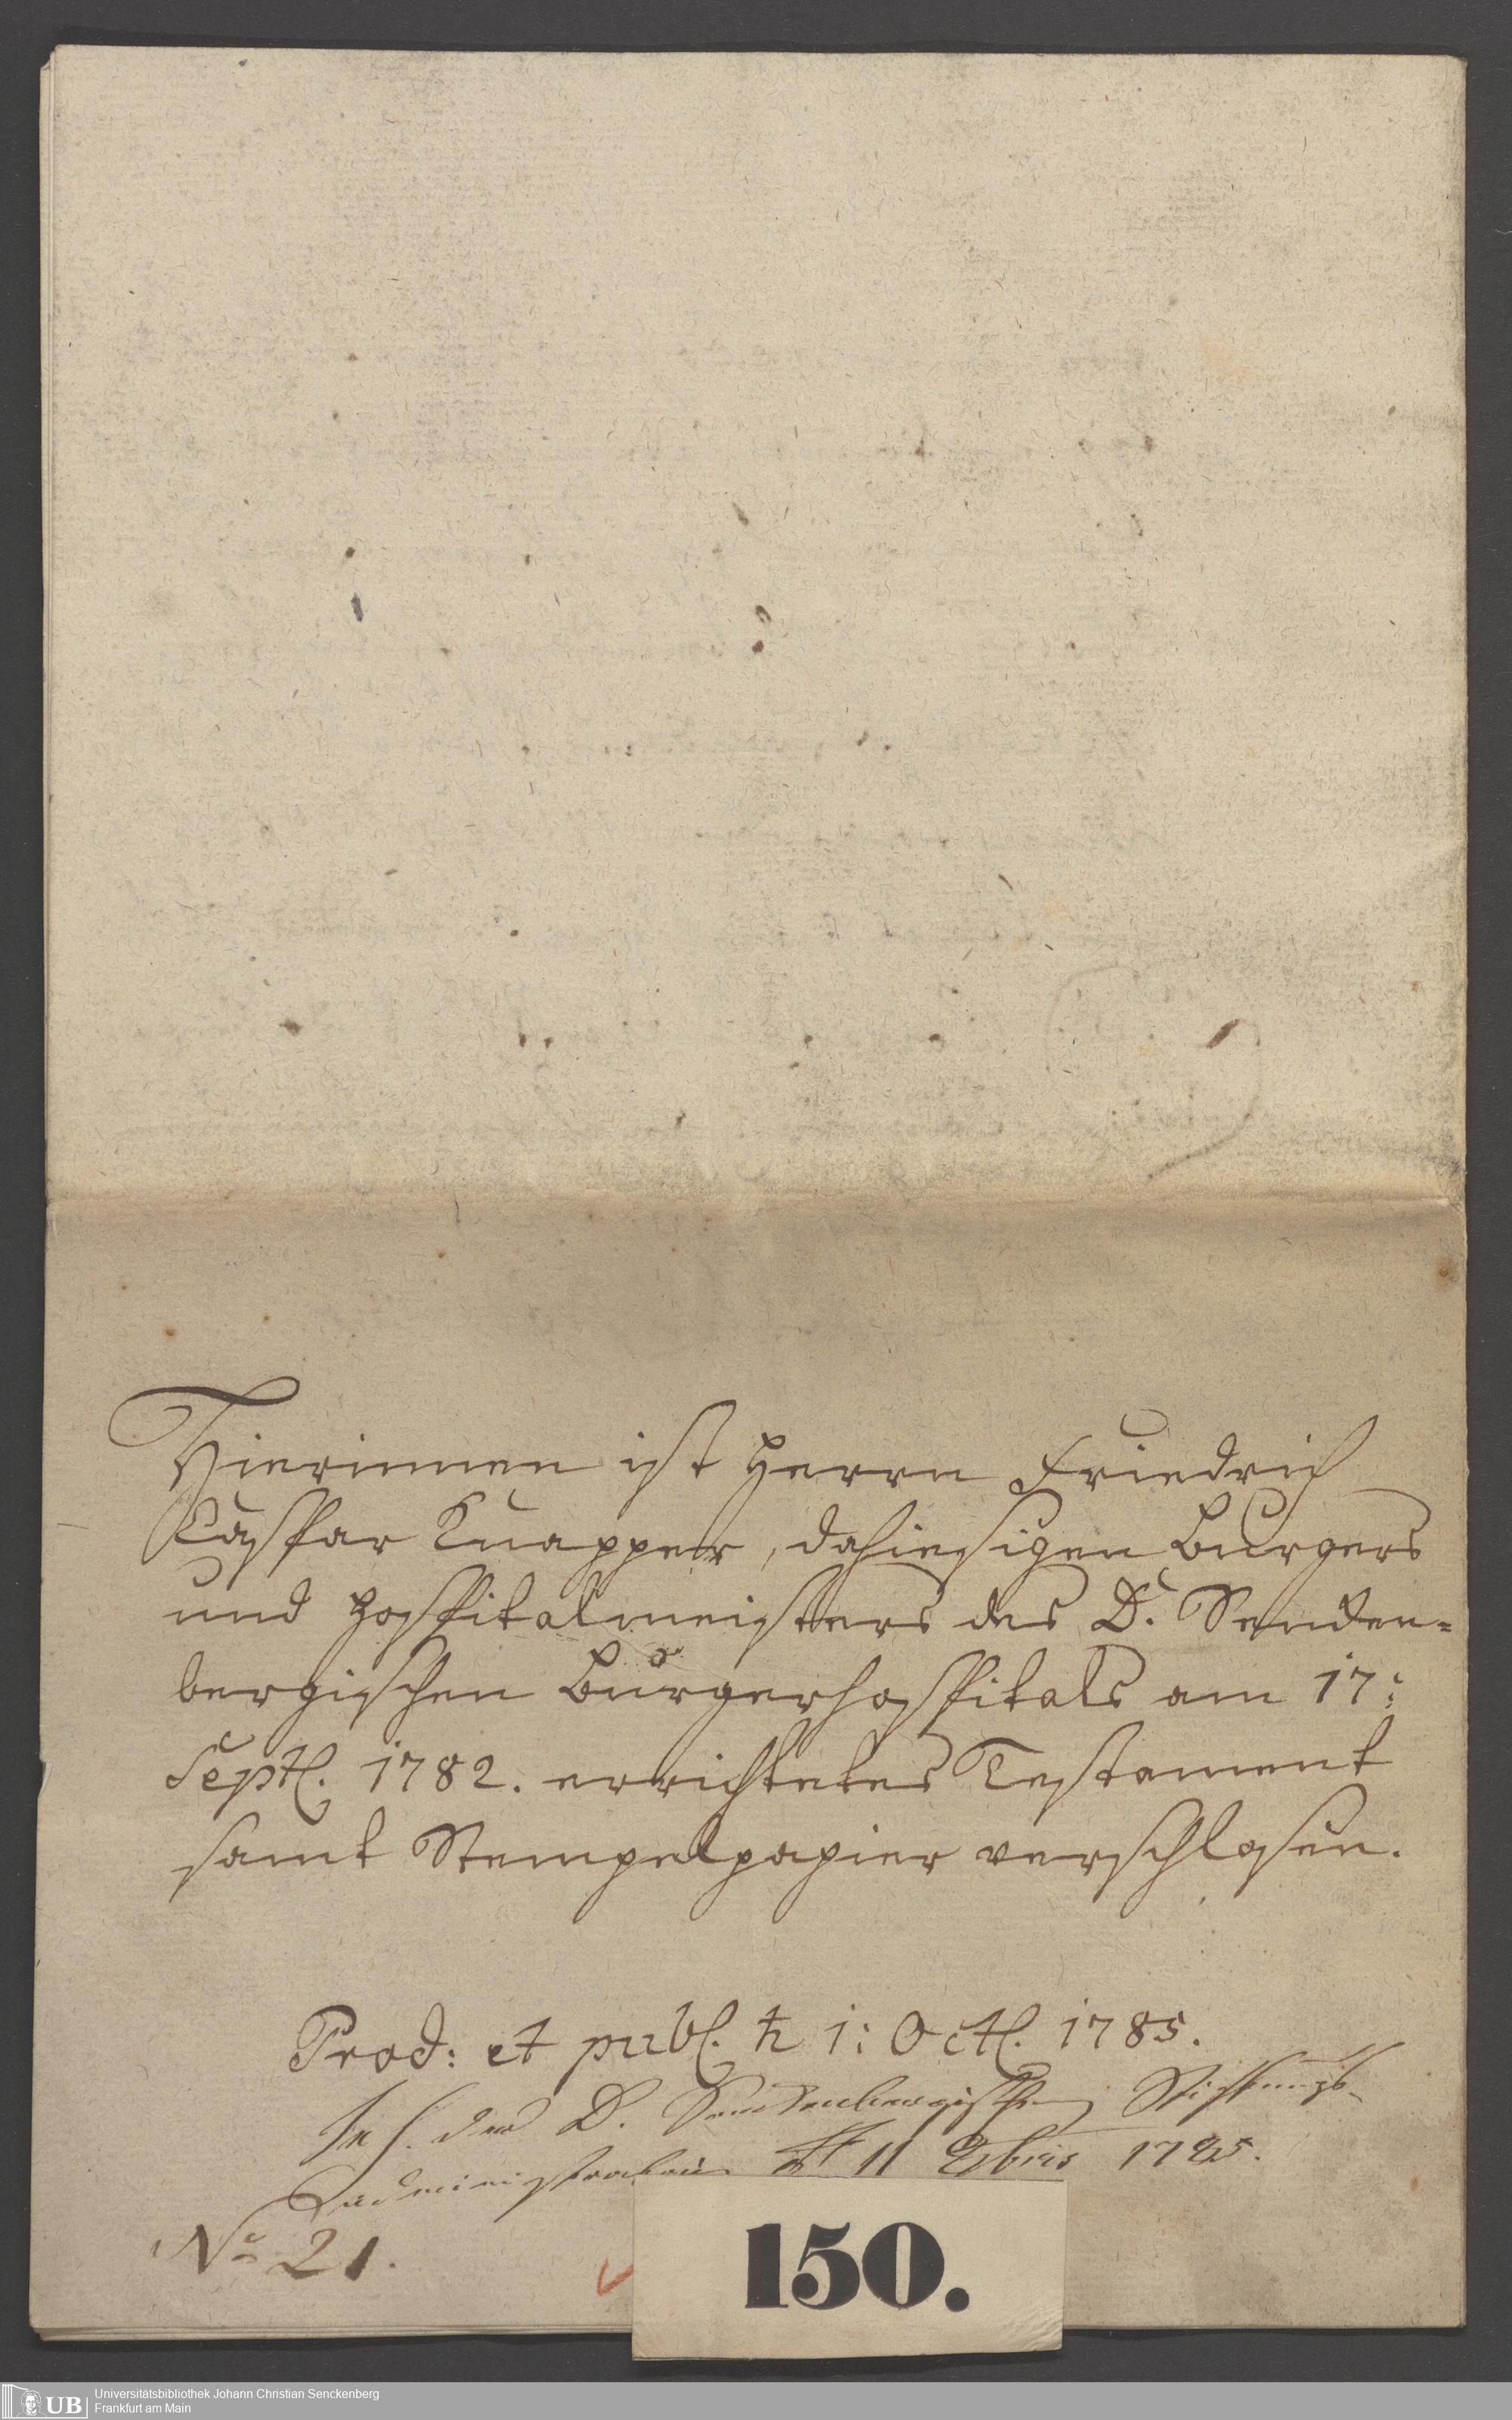 Hierinnen ist Herrn Friedrich
Caspar Knapper, dahiesigen Burgers
und Hospitalmeisters des D. Senken=
bergischen Bürgerhospitals am 17:
Septl. 1782. errichtetes Testament
samt Stempelpapier verschlosen.
Prod: et publ. ♄ 1: Octl. 1785.
der D. Senckenbergischen Stiftungs-
Administration 11 1785.
No 21.
150.
UB
Universitätsbibliothek Johann Christian Senckenberg
Frankfurt am Main